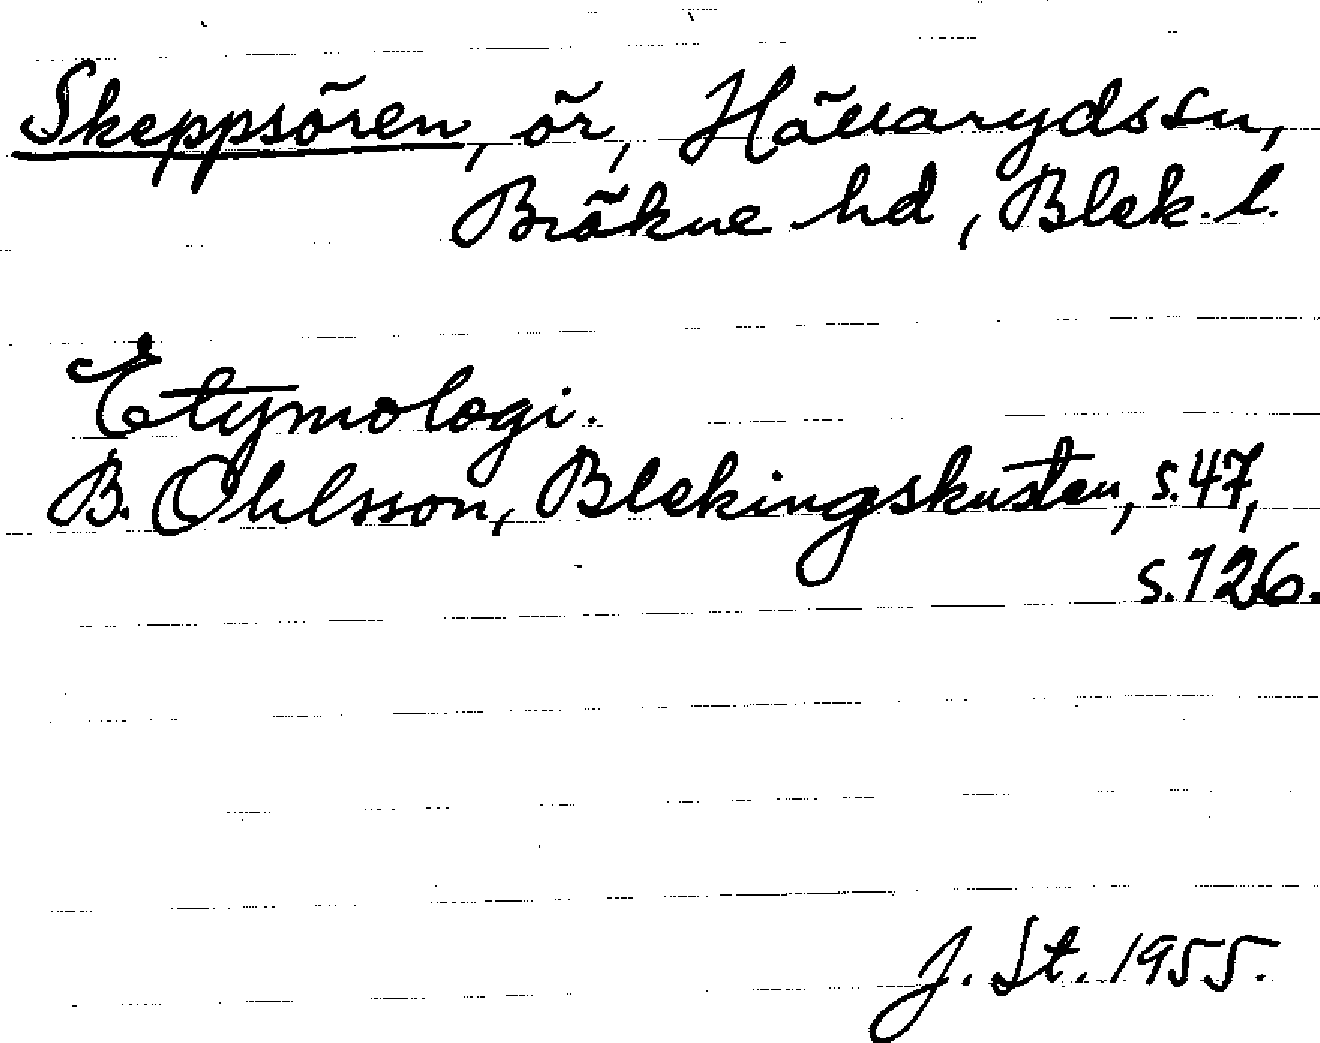 Skeppsören, ör, Hällarydssn,
Bräkne hd, Blek. l.
Etymologi.
B. Ohlsson, Blekingskusten, s. 47,
s. 126.
J. St. 1955.